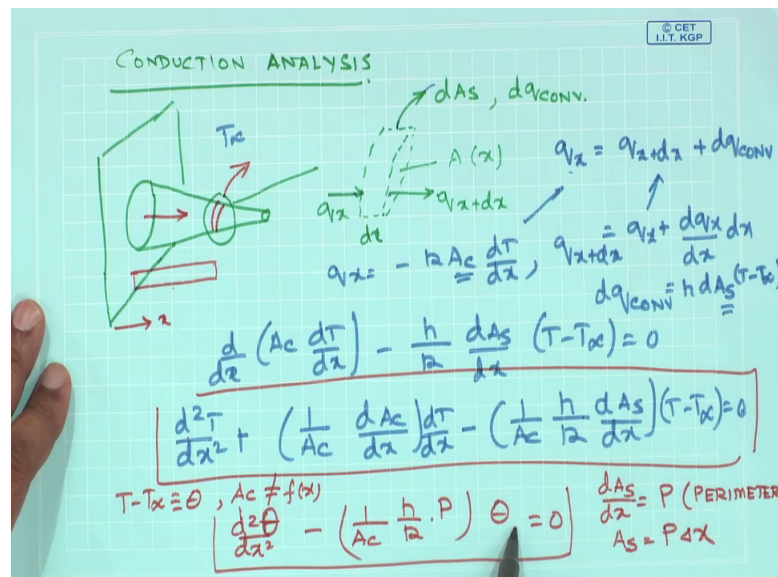 © CET
I.I.T. KGP
CONDUCTION ANALYSIS
T∞
dAs, dqCONV.
A(x)
qx
qx+dx
dx
x
qx = qx+dx + dqCONV
qx = - k Ac dT/dx, qx+dx = qx + dqx/dx dx
dqCONV = h dAs (T-T∞)
d/dx (Ac dT/dx) - h/k dAs/dx (T-T∞) = 0
d²T/dx² + (1/Ac dAc/dx) dT/dx - (1/Ac h/k dAs/dx) (T-T∞) = 0
T-T∞ ≡ θ, Ac ≠ f(x)
d²θ/dx² - (1/Ac h/k . P) θ = 0
dAs/dx = P (PERIMETER
As = P Δx